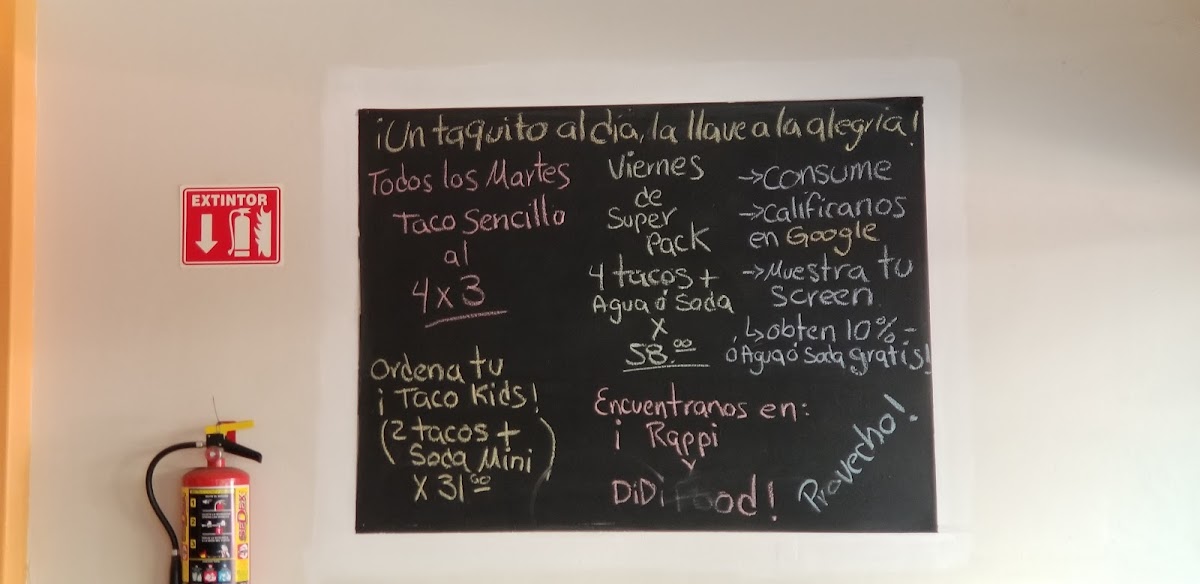 ¡Un taquito al día, la llave a la alegría!
Todos los Martes
Taco Sencillo
al
4x3
Ordena tu
¡Taco Kids!
(2 tacos +
Soda Mini)
X 31.00
Viernes
de
Super
Pack
4 tacos +
Agua ó Soda
X
58.00
→Consume
→Calificanos
en Google
→Muestra tu
Screen
↳obten 10%-
ó Agua ó Soda gratis!
Encuentranos en:
¡ Rappi
y
DiDi Food!
Provecho!
EXTINTOR
SEDEX